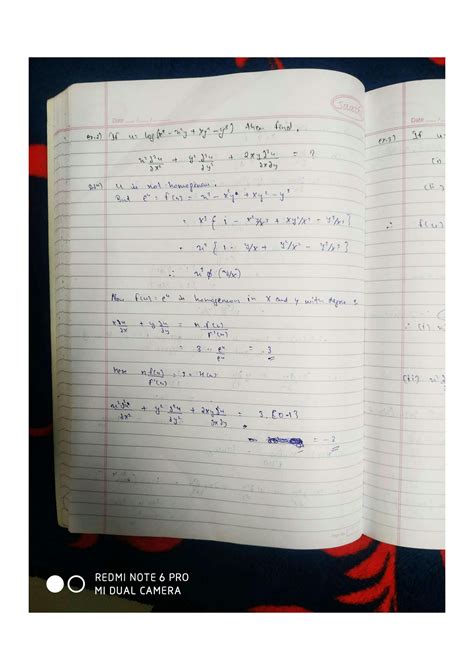 Date
ex.2) If u = log(x³ - x²y + xy² - y³) then find,
x² ∂²u/∂x² + y² ∂²u/∂y² + 2xy ∂²u/∂x∂y = ?
u is not homogenous.
But eᵘ = f(u) = x³ - x²y + xy² - y³
= x³ { 1 - x²y/x³ + xy²/x³ - y³/x³ }
= x³ { 1 - y/x + y²/x² - y³/x³ }
∴ x³ φ (y/x)
Now f(u) = eᵘ is homogenous in x and y with degree 3
x ∂u/∂x + y ∂u/∂y = n f(u)/f'(u)
= 3 · eᵘ/eᵘ = 3
here n f(u)/f'(u) = 3 = H(u)
x² ∂²u/∂x² + y² ∂²u/∂y² + 2xy ∂²u/∂x∂y = 3 · [0-1]
= -3
Date
If u
(i)
(ii)
REDMI NOTE 6 PRO
MI DUAL CAMERA